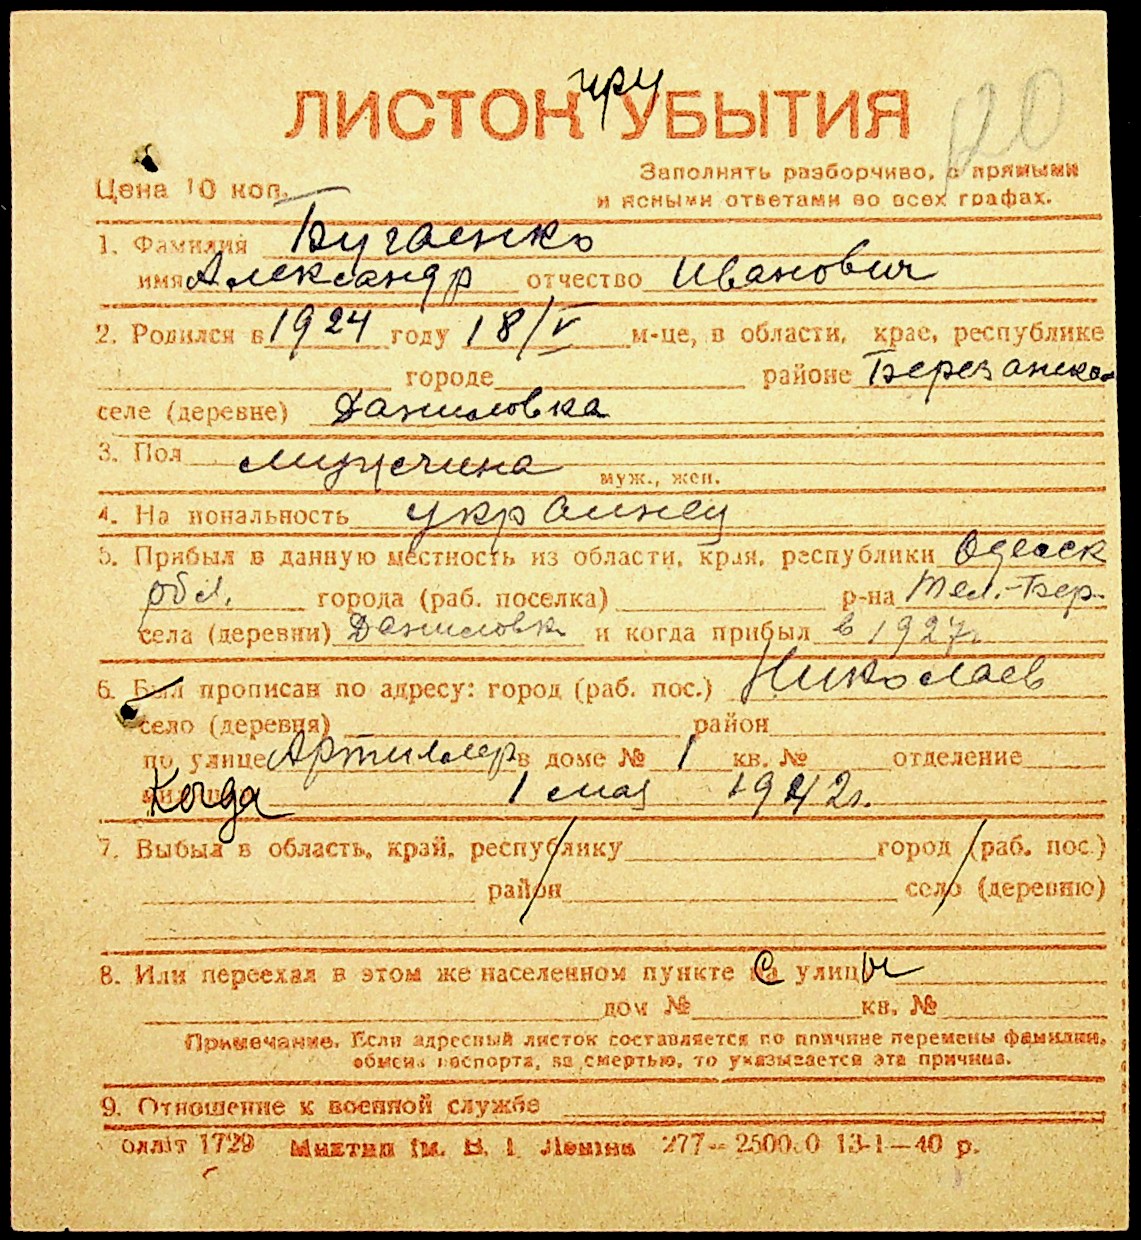 при
ЛИСТОК УБЫТИЯ
20
Заполнять разборчиво, с прямыми
Цена 10 коп.
и ясными ответами во всех графах.
1. Фамилия Бугаенко
имя Александр отчество Иванович
2. Родился в 1924 году 18/V м-це, в области, крае, республике
городе районе Березанско
селе (деревне) Даниловка
3. Пол мужчина
муж., жен.
4. На иональность украинец
5. Прибыл в данную местность из области, края, республики Одесск
обл. города (раб. поселка) р-на Тел.-Бер.
села (деревни) Даниловк и когда прибыл в 1927г
6. Был прописан по адресу: город (раб. пос.) Николаев
село (деревня) район
по улице Артиллер в доме № 1 кв. № отделение
Когда 1 мая 1942г.
7. Выбыл в область, край, республику город (раб. пос.)
район село (деревню)
8. Или переехал в этом же населенном пункте с улицы
дом № кв. №
Примечание. Если адресный листок составляется по причине перемены фамилии,
обмена паспорта, за смертью, то указывается эта причина.
9. Отношение к военной службе
Оллiт 1729 Миктип iм. В. I. Ленiна 277—25000 13-1—40 р.